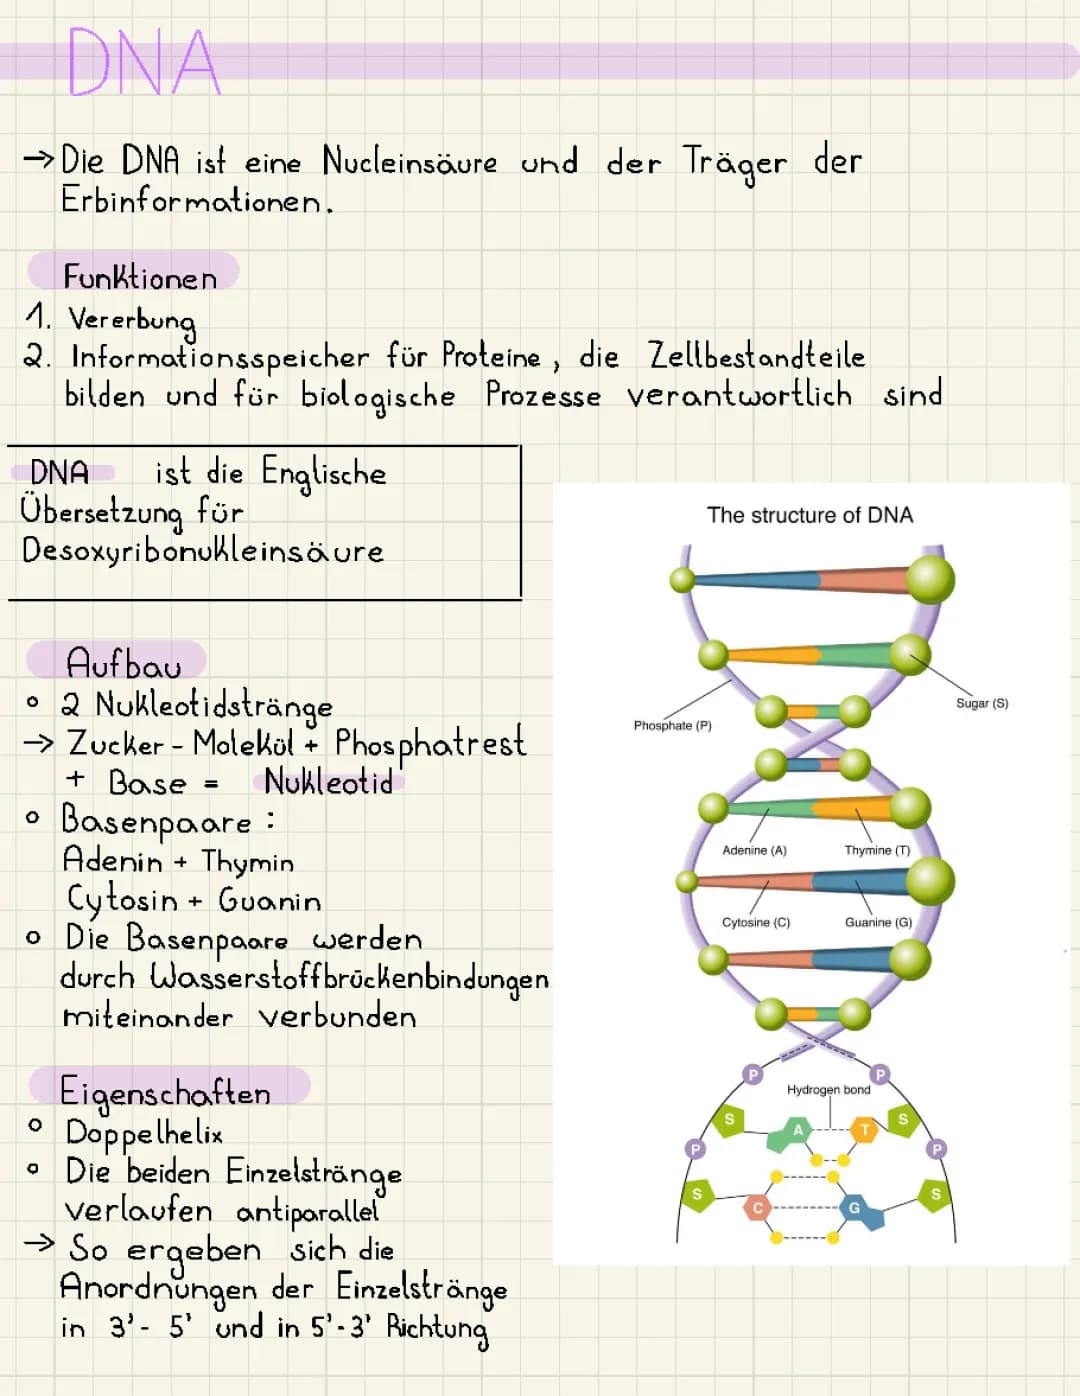 DNA
→ Die DNA ist eine Nucleinsäure und der Träger der
Erbinformationen.
Funktionen
1. Vererbung
2. Informationsspeicher für Proteine, die Zellbestandteile
bilden und für biologische Prozesse verantwortlich sind
DNA ist die Englische
Übersetzung für
Desoxyribonukleinsäure
Aufbau
° 2 Nukleotidstränge
→ Zucker-Molekül + Phosphatrest
+ Base = Nukleotid
° Basenpaare:
Adenin + Thymin
Cytosin + Guanin
° Die Basenpaare werden
durch Wasserstoffbrückenbindungen
miteinander verbunden
Eigenschaften
° Doppelhelix
° Die beiden Einzelstränge
verlaufen antiparallel
→ So ergeben sich die
Anordnungen der Einzelstränge
in 3'-5' und in 5'-3' Richtung
The structure of DNA
Sugar (S)
Phosphate (P)
Adenine (A) Thymine (T)
Cytosine (C) Guanine (G)
P P
Hydrogen bond
S S
A T
P P
S S
C G